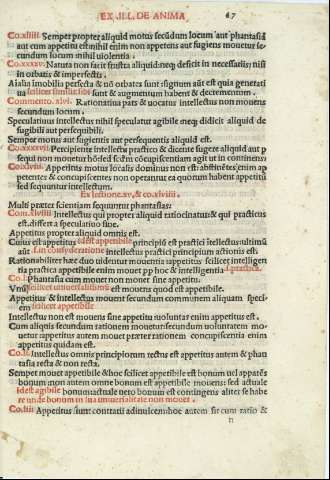 EX .III. DE ANIMA 67
Co.xliiii. Semper propter aliquid motus secūdum locum aut phantasia
aut cum appetitu est nihil enim non appetens aut fugiens mouetur se
cundum locum nihil uiolentia.
Co.xxxxv. Natura non facit frustra aliquid neq; deficit in necessariis; nisi
in orbatis & imperfectis.
Aīalia imobilia perfecta & nō orbata sunt: signum aūt est quia generati
ua scilicet similiū sibi sunt & augmentum habent & decrementum.
Commento. xlvi. Ratiōnatiua pars & uocatus intellectus non mouens
secundum locum.
Speculatiuus intellectus nihil speculatur agibile neq; didicit aliquid de
fugibili aut persequibili.
Semper motus aut fugientis aut persequentis aliquid est.
Co.xxxxvii Precipiente intellectu practico & dicente fugere aliquid aut p
sequi non mouetur hō sed scdm cōcupiscentiam agit ut in continens:
Co.xlviii. Appetitus motus localis dominus non est: abstinētes enim ap
petentes & concupiscentes non operantur ea quorum habent appetitū
sed sequuntur intellectum.
Ex lectione.xv. & co.xlviiii.
Multi præter scientiam sequuntur phantasias:
Com.xlviiii Intellectus qui propter aliquid ratiocinatur & qui practicus
est. differt a speculatiuo fine.
Appetitus propter aliquid omnis est.
Cuius est appetitus idest appetibile principiū est practici īntellectus ultimū
aūt .i.in consyderatione intellectus practici principium actionis est.
Rationabiliter hæc duo uidentur mouentia appetitus: scilicet intelligen
tia practica appetibile enim mouet pp hoc & intelligentia .i.practica.
Co.l. Phantasia cum mouet non mouet sine appetitu.
Vnū scilicet uniuersalissimū est mouens quod est appetibile.
Appetitus & intellectus mouent secundum communem aliquam speci
em scilicet appetibile
Intellectus non est mouens sine appetitu uoluntas enim appetitus est.
Cum aliquis secundum rationem mouetur secundum uoluntatem mo
uetur appetitus autem mouet præter rationem concupiscentia enim
appetitus quidam est.
Co.li. Intellectus omnis principiorum rectus est appetitus autem & phan
tasia recta & non recta.
Semper mouet appetibile & hoc scilicet appetibile est bonum uel apparēs
bonum non autem omne bonum est appetibile mouens: sed actuale
idest agibile bonum actuale uero bonum est contingens aliter se habe
re unde bonum in sua uniuersalitate non mouet.
Co.liii Appetitus sunt contrarii adinuicem hoc autem fit cum ratio &
n